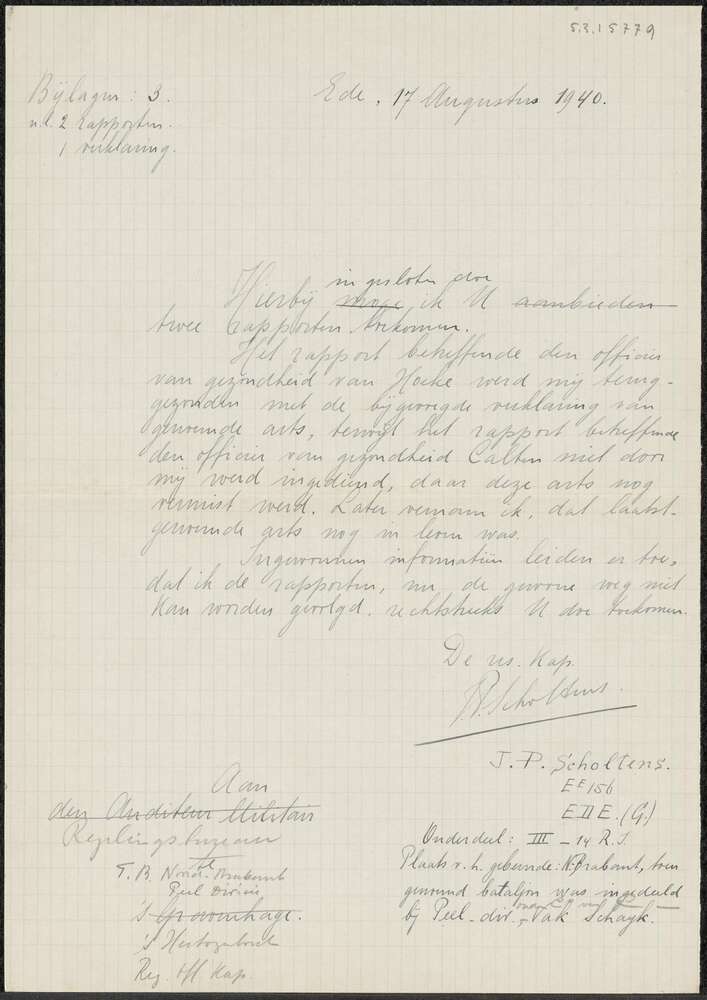 5.3.15779
Bijlagen: 3.
n.l. 2 rapporten.
1 verklaring.
Ede, 17 Augustus 1940.
ingesloten doe
Hierbij moge ik U aanbieden
twee rapporten toekomen.
Het rapport betreffende den officier
van gezondheid van Hoeke werd mij terug-
gezonden met de bijgevoegde verklaring van
genoemde arts, terwijl het rapport betreffende
den officier van gezondheid Calten niet door
mij werd ingediend, daar deze arts nog
vermist werd. Later vernam ik, dat laatst-
genoemde arts nog in leven was.
Ingewonnen informatiën leiden er toe,
dat ik de rapporten, nu de gewone weg niet
kan worden gevolgd, rechtstreeks U doe toekomen.
De res. Kap.
J.P. Scholtens.
J. P. Scholtens.
EE 156
E II E. (G.)
Onderdeel: III - 14 R.I.
Plaats v. h. gebeurde: N. Brabant, toen
genoemd bataljon was ingedeeld
bij Peel-div. - vak Schayk.
Aan
den Auditeur Militair
Regelingsbureau
T.B. Noord-Brabant
Peel Divisie
's Gravenhage.
's Hertogenbosch
Reg. Off. Kap.